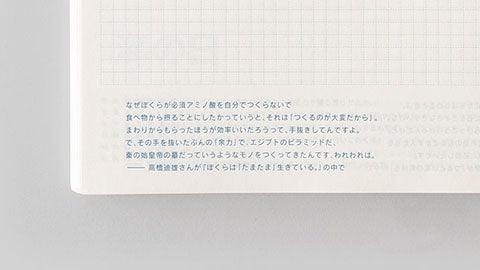 なぜぼくらが必須アミノ酸を自分でつくらないで
食べ物から摂ることにしたかっていうと、それは「つくるのが大変だから」。
まわりからもらったほうが効率いいだろうって、手抜きしてんですよ。
で、その手を抜いたぶんの「余力」で、エジプトのピラミッドだ、
秦の始皇帝の墓だっていうようなモノをつくってきたんです、われわれは。
—— 高橋迪雄さんが『ぼくらは「たまたま」生きている。』の中で